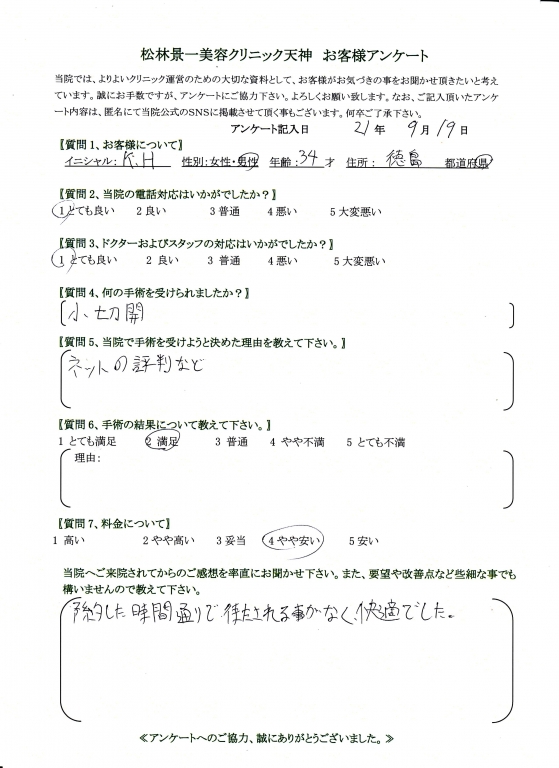 松林景一美容クリニック天神 お客様アンケート
当院では、よりよいクリニック運営のための大切な資料として、お客様がお気づきの事をお聞かせ頂きたいと考え
ています。誠にお手数ですが、アンケートにご協力下さい。よろしくお願い致します。なお、ご記入頂いたアンケ
ート内容は、匿名にて当院公式のSNSに掲載させて頂く事もございます。何卒ご了承下さい。
アンケート記入日 21年 9月19日
【質問1、お客様について】
イニシャル: K.H 性別:女性・男性 年齢:34才 住所: 徳島 都道府県
【質問2、当院の電話対応はいかがでしたか?】
1とても良い 2良い 3普通 4悪い 5大変悪い
【質問3、ドクターおよびスタッフの対応はいかがでしたか?】
1とても良い 2 良い 3 普通 4悪い 5大変悪い
【質問4、何の手術を受けられましたか?】
小切開
【質問5、当院で手術を受けようと決めた理由を教えて下さい。】
ネットの評判など
【質問6、手術の結果について教えて下さい。】
1 とても満足 2 満足 3 普通 4 やや不満 5 とても不満
理由:
【質問7、料金について】
1 高い 2やや高い 3妥当 4やや安い 5安い
当院へご来院されてからのご感想を率直にお聞かせ下さい。また、要望や改善点など些細な事でも
構いませんので教えて下さい。
予約した時間通りで待たされる事がなく、快適でした。
≪アンケートへのご協力、誠にありがとうございました。≫